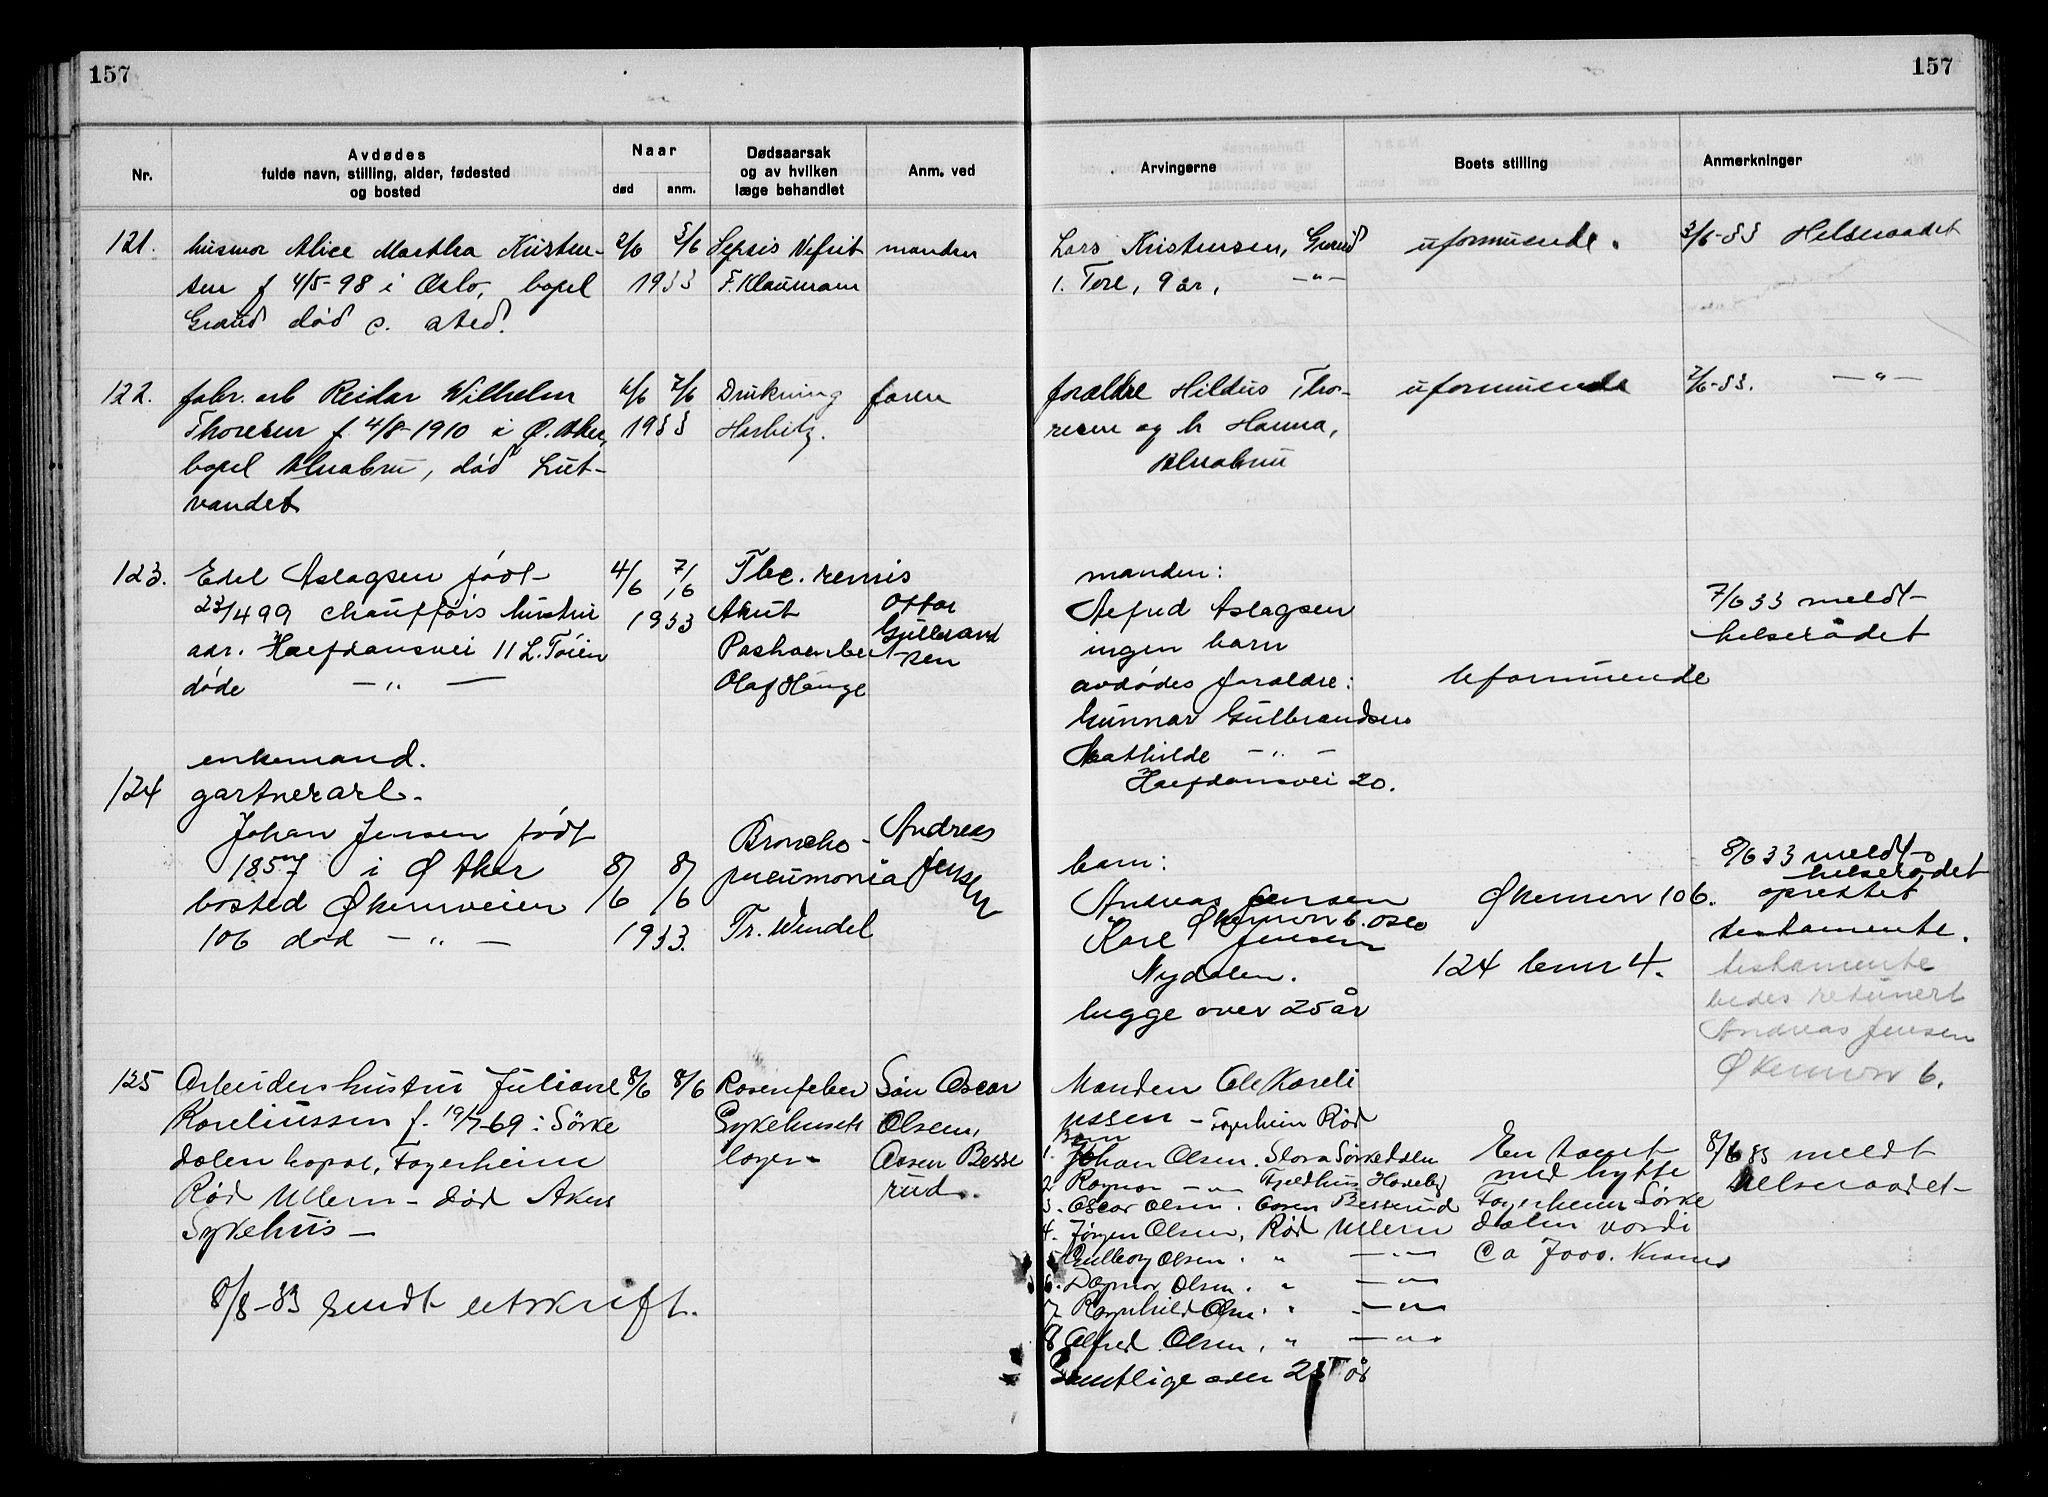 157
157
Nr.
Avdødes
fulde navn, stilling, alder, fødested
og bosted
Naar
død
anm.
Dødsaarsak
og av hvilken
læge behandlet
Anm. ved
Arvingerne
Boets stilling
Anmerkninger
121.
husmor Alice Martha Kristen-
sen f 4/5-98 i Oslo, bopel
Grorud død s. sted.
2/6
3/6
1933
Sepsis Nefrit
manden
Lars Kristensen, Grorud
1. Tore, 9 år, —"—
uformuende.
3/6-33 Helseraadet
122.
fabr. arb Reidar Wilhelm
Thoresen f. 4/8-1910 i Ø. Aker,
bopel Alnabru, død Lut-
vandet
6/6
7/6
1933
Drukning
Harbitz.
faren
forældre Hildus Tho-
resen og h Hanna,
Alnabru
uformuende
7/6-33. —"—
123.
Edel Aslagsen født
23/4 99 chaufførs hustru
adr. Halfdansvei 11 L. Tøien
døde —"—
4/6
7/6
1933
Tbc. renis
Akut
Olaf Hauge
Ottar
Gulbrand
sen
manden:
Alfred Aslagsen
ingen barn
avdødes foraldre:
Gunnar Gulbrandsen
Mathilde —"—
Halfdansvei 20.
Uformuende
7/6 33 meldt
helserådet
124
enkemand.
gartnerarb.
Johan Jensen født
1857 i Ø Aker
bosted Økernveien
106 død —"—
8/6
8/6
1933.
Broncho-
pneumonia
Tr. Wendel
Andreas
Jensen
barn:
Andreas Jensen
Økernvn 6. Oslo
Karl Jensen
Nydalen.
begge over 25 år
Økernvn 106.
124 bnr 4.
8/6 33 meldt
helserådet
oprettet
testamente.
testamente
bedes retunert
Andreas Jensen
Økernvn 6.
125
Arbeiders hustru Juliane
Koreliussen f. 19/7-69 i Sörke
dalen bopæl, Fagerheim
Röd Ullern – död Akers
Sykehus —
8/8-33 sendt utskrift.
8/6
8/6
Rosenfeber
Sykehusets
læger
Sön Oscar
Olsen,
Aasen Besse
rud.
Manden Ole Koreli
ussen – Fagerheim Röd
Barn
1. Johan Olsen. Stora Sörkedalen
2 Ragnar —"— Fjeldhus Hasleby
3. Oscar Olsen. Aasen Besserud
4. Jörgen Olsen, Röd Ullern
5 Gulborg Olsen. " —"—
6. Dagmar Olsen. " —"—
7 Ragnhild Olsen. " —"—
8 Alfred Olsen, " —"—
Samtlige over 25 år
En tomt
med hytte
Fagerheim Sörke
dalen værdi
Ca 7000. Kroner
8/6 33 meldt
Helseraadet